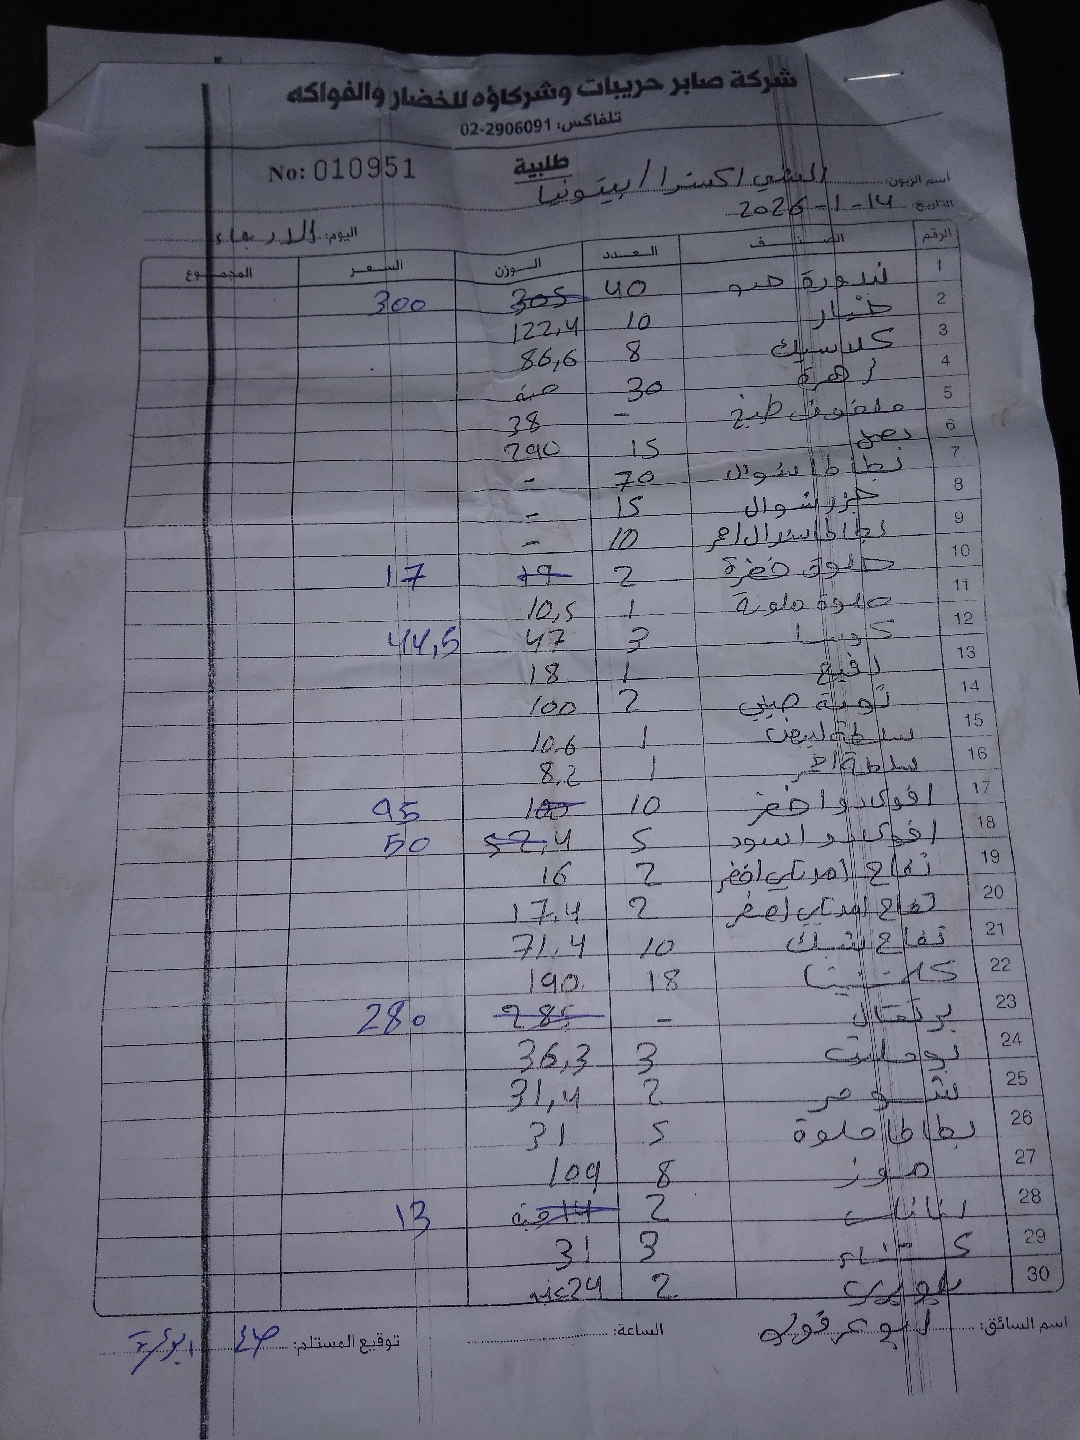 شركة صابر حريبات وشركاؤه للخضار والفواكه
تلفاكس: 02-2906091
طلبية
No: 010951
اسم الزبون: الشني اكسترا / بيتونيا
التاريخ: 14-1-2026
اليوم: الاربعاء
الرقم الصنف العدد الوزن السعر المجموع
1 بندورة حبو 40 305 300
2 خيار 10 122,4
3 كلاسيك 8 86,6
4 زهرة 30 حبة
5 ملفوف طبخ - 38
6 بصل 15 290
7 بطاطا شوال 70 -
8 جزر شوال 15 -
9 بطاطا شوال احمر 10 -
10 حلوة خضرة 2 19 17
11 حلوة ملونة 1 10,5
12 كوسا 3 47 44,5
13 رفيع 1 18
14 تومة صيني 2 100
15 سلطة ابيض 1 10,6
16 سلطة احمر 1 8,2
17 افوكادو اخضر 10 100 95
18 افوكادو اسود 5 52,4 50
19 تفاح امريكي اخضر 2 16
20 تفاح امريكي اصفر 2 17,4
21 تفاح تشك 10 71,4
22 كلمنتينا 18 190
23 برتقال - 285 280
24 بوملت 3 36,3
25 شومر 2 31,4
26 بطاطا حلوة 5 31
27 موز 8 109
28 اناناس 2 14 حبة 13
29 كستناء 3 31
30 2 24
اسم السائق: ابو عرقوب
الساعة:
توقيع المستلم: